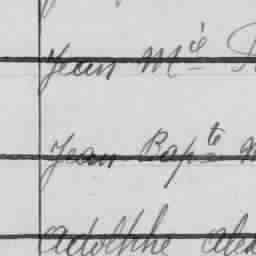 Jean Mie
Jean Bapte
Adolphe Alex